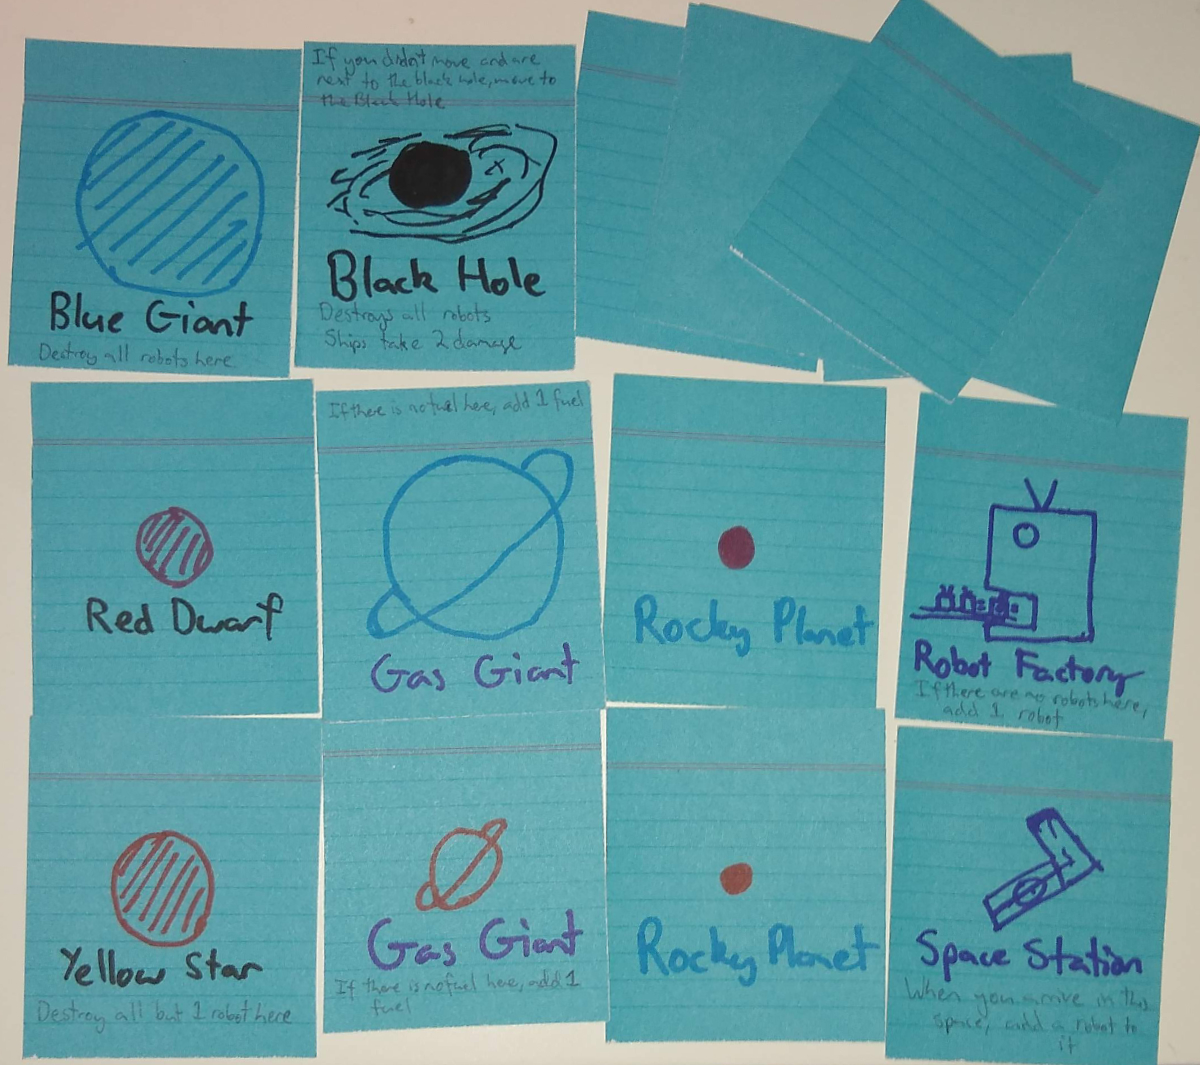 If you didn't move and are
next to the black hole, move to
the Black Hole
Blue Giant
Destroy all robots here.
Black Hole
Destroys all robots
Ships take 2 damage
Red Dwarf
If there is no fuel here, add 1 fuel
Gas Giant
Rocky Planet
Robot Factory
If there are no robots here,
add 1 robot
Yellow Star
Destroy all but 1 robot here
Gas Giant
If there is no fuel here, add 1
fuel
Rocky Planet
Space Station
When you arrive in this
space, add a robot to
it